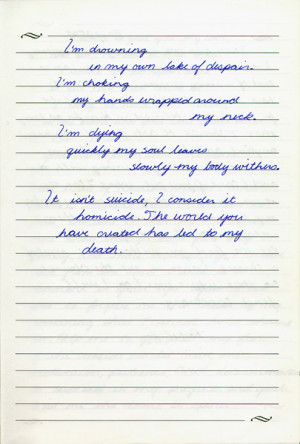 I'm drowning
in my own lake of despair.
I'm choking
my hands wrapped around
my neck.
I'm dying
quickly my soul leaves
slowly my body withers.
It isn't suicide, I consider it
homicide. The world you
have created has led to my
death.